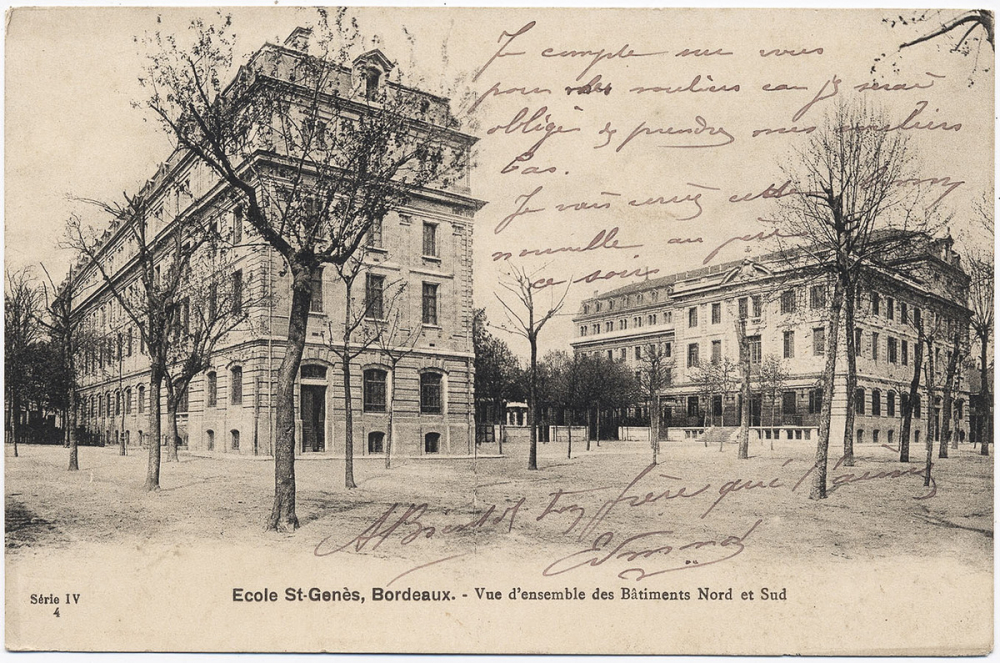 Je compte sur vous
pour mes souliers car je serai
obligé de prendre mes souliers
bas.
Je vais cette
nouvelle au
ce soir
A Bientot ton frère qui t'aime
Edmond
Ecole St-Genès, Bordeaux. - Vue d'ensemble des Bâtiments Nord et Sud
Série IV
4